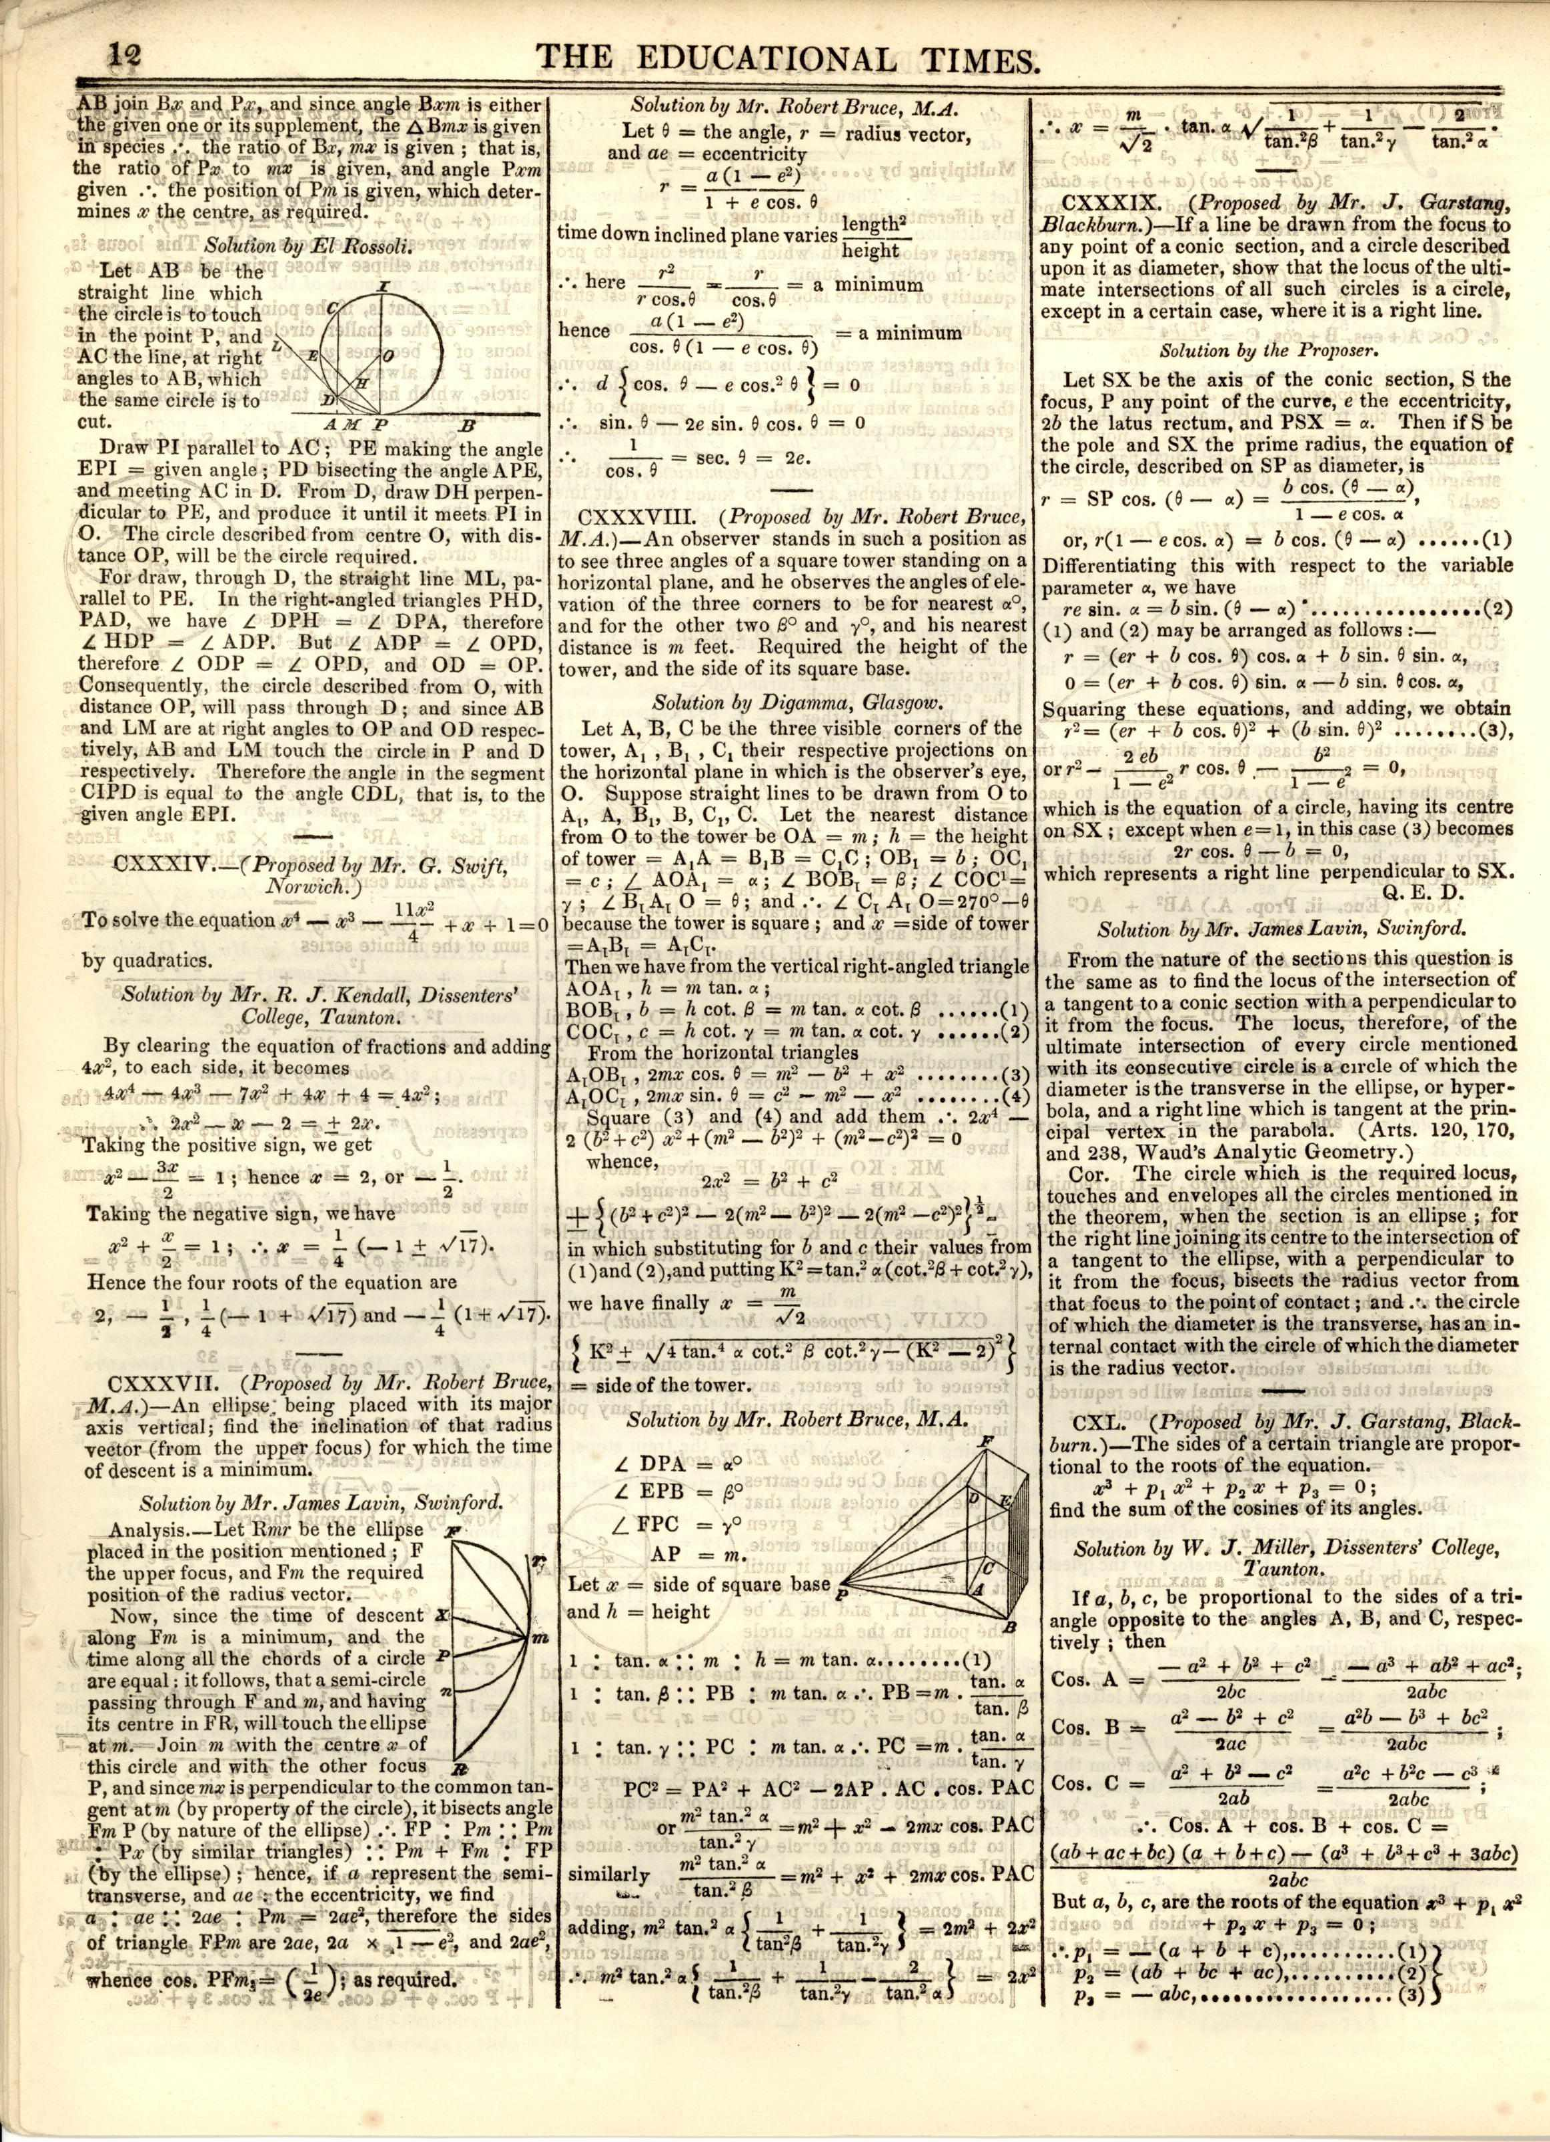 12
THE EDUCATIONAL TIMES.
AB join Bx and Px, and since angle Bxm is either
the given one or its supplement, the △Bmx is given
in species ∴ the ratio of Bx, mx is given ; that is,
the ratio of Px to mx is given, and angle Pxm
given ∴ the position of Pm is given, which deter-
mines x the centre, as required.
Solution by El Rossoli.
Let AB be the
straight line which
the circle is to touch
in the point P, and
AC the line, at right
angles to AB, which
the same circle is to
cut.
I
C
L
E
O
H
D
A M P B
Draw PI parallel to AC ; PE making the angle
EPI = given angle ; PD bisecting the angle APE,
and meeting AC in D. From D, draw DH perpen-
dicular to PE, and produce it until it meets PI in
O. The circle described from centre O, with dis-
tance OP, will be the circle required.
For draw, through D, the straight line ML, pa-
rallel to PE. In the right-angled triangles PHD,
PAD, we have ∠ DPH = ∠ DPA, therefore
∠ HDP = ∠ ADP. But ∠ ADP = ∠ OPD,
therefore ∠ ODP = ∠ OPD, and OD = OP.
Consequently, the circle described from O, with
distance OP, will pass through D ; and since AB
and LM are at right angles to OP and OD respec-
tively, AB and LM touch the circle in P and D
respectively. Therefore the angle in the segment
CIPD is equal to the angle CDL, that is, to the
given angle EPI.
CXXXIV.—(Proposed by Mr. G. Swift,
Norwich.)
To solve the equation x⁴ — x³ — 11x²/4 + x + 1=0
by quadratics.
Solution by Mr. R. J. Kendall, Dissenters'
College, Taunton.
By clearing the equation of fractions and adding
4x², to each side, it becomes
4x⁴ — 4x³ — 7x² + 4x + 4 = 4x² ;
∴ 2x² — x — 2 = ± 2x.
Taking the positive sign, we get
x² — 3x/2 = 1 ; hence x = 2, or — 1/2.
Taking the negative sign, we have
x² + x/2 = 1 ; ∴ x = 1/4 (— 1 ± √17).
Hence the four roots of the equation are
2, — 1/2, 1/4 (— 1 + √17) and — 1/4 (1 + √17).
CXXXVII. (Proposed by Mr. Robert Bruce,
M.A.)—An ellipse being placed with its major
axis vertical; find the inclination of that radius
vector (from the upper focus) for which the time
of descent is a minimum.
Solution by Mr. James Lavin, Swinford.
Analysis.—Let Rmr be the ellipse
placed in the position mentioned ; F
the upper focus, and Fm the required
position of the radius vector.
Now, since the time of descent
along Fm is a minimum, and the
time along all the chords of a circle
are equal : it follows, that a semi-circle
passing through F and m, and having
its centre in FR, will touch the ellipse
at m. Join m with the centre x of
this circle and with the other focus
F
r
X
m
P
n
R
P, and since mx is perpendicular to the common tan-
gent at m (by property of the circle), it bisects angle
Fm P (by nature of the ellipse) ∴ FP : Pm :: Pm
: Px (by similar triangles) :: Pm + Fm : FP
(by the ellipse) ; hence, if a represent the semi-
transverse, and ae : the eccentricity, we find
a : ae :: 2ae : Pm = 2ae², therefore the sides
of triangle FPm are 2ae, 2a × 1 — e², and 2ae²,
whence cos. PFm = (1/2e) ; as required.
Solution by Mr. Robert Bruce, M.A.
Let θ = the angle, r = radius vector,
and ae = eccentricity
r = a (1 — e²)/1 + e cos. θ
time down inclined plane varies length²/height
∴ here r²/r cos. θ = r/cos. θ = a minimum
hence a (1 — e²)/cos. θ (1 — e cos. θ) = a minimum
∴ d { cos. θ — e cos.² θ } = 0
∴ sin. θ — 2e sin. θ cos. θ = 0
∴ 1/cos. θ = sec. θ = 2e.
CXXXVIII. (Proposed by Mr. Robert Bruce,
M.A.)—An observer stands in such a position as
to see three angles of a square tower standing on a
horizontal plane, and he observes the angles of ele-
vation of the three corners to be for nearest α°,
and for the other two β° and γ°, and his nearest
distance is m feet. Required the height of the
tower, and the side of its square base.
Solution by Digamma, Glasgow.
Let A, B, C be the three visible corners of the
tower, A₁ , B₁ , C₁ their respective projections on
the horizontal plane in which is the observer's eye,
O. Suppose straight lines to be drawn from O to
A₁, A, B₁, B, C₁, C. Let the nearest distance
from O to the tower be OA = m ; h = the height
of tower = A₁A = B₁B = C₁C ; OB₁ = b ; OC₁
= c ; ∠ AOA₁ = α ; ∠ BOB₁ = β ; ∠ COC¹ =
γ ; ∠ B₁A₁ O = θ ; and ∴ ∠ C₁ A₁ O=270°—θ
because the tower is square ; and x =side of tower
=A₁B₁ = A₁C₁.
Then we have from the vertical right-angled triangle
AOA₁ , h = m tan. α ;
BOB₁ , b = h cot. β = m tan. α cot. β ......(1)
COC₁ , c = h cot. γ = m tan. α cot. γ ......(2)
From the horizontal triangles
A₁OB₁ , 2mx cos. θ = m² — b² + x² ........(3)
A₁OC₁ , 2mx sin. θ = c² — m² — x² ........(4)
Square (3) and (4) and add them ∴ 2x⁴ —
2 (b² + c²) x² + (m² — b²)² + (m²—c²)² = 0
whence,
2x² = b² + c²
± { (b² + c²)² — 2(m² — b²)² — 2(m² — c²)² }^½
in which substituting for b and c their values from
(1) and (2), and putting K²=tan.² α (cot.²β + cot.² γ),
we have finally x = m/√2
{ K² ± √4 tan.⁴ α cot.² β cot.² γ— (K² — 2)² }
= side of the tower.
Solution by Mr. Robert Bruce, M.A.
∠ DPA = α°
∠ EPB = β°
∠ FPC = γ°
AP = m.
Let x = side of square base
and h = height
F
D
E
C
A
P
B
1 : tan. α :: m : h = m tan. α........(1)
1 : tan. β :: PB : m tan. α ∴ PB = m . tan. α/tan. β
1 : tan. γ :: PC : m tan. α ∴ PC = m . tan. α/tan. γ
PC² = PA² + AC² — 2AP . AC . cos. PAC
or m² tan.² α/tan.² γ = m² + x² — 2mx cos. PAC
similarly m² tan.² α/tan.² β = m² + x² + 2mx cos. PAC
adding, m² tan.² α { 1/tan²β + 1/tan.²γ } = 2m² + 2x²
∴ m² tan.² α { 1/tan.²β + 1/tan.²γ — 2/tan.² α } = 2x²
∴ x = m/√2 · tan. α √ 1/tan.²β + 1/tan.² γ — 2/tan.² α ·
CXXXIX. (Proposed by Mr. J. Garstang,
Blackburn.)—If a line be drawn from the focus to
any point of a conic section, and a circle described
upon it as diameter, show that the locus of the ulti-
mate intersections of all such circles is a circle,
except in a certain case, where it is a right line.
Solution by the Proposer.
Let SX be the axis of the conic section, S the
focus, P any point of the curve, e the eccentricity,
2b the latus rectum, and PSX = α. Then if S be
the pole and SX the prime radius, the equation of
the circle, described on SP as diameter, is
r = SP cos. (θ — α) = b cos. (θ — α)/1 — e cos. α,
or, r(1 — e cos. α) = b cos. (θ — α) ......(1)
Differentiating this with respect to the variable
parameter α, we have
re sin. α = b sin. (θ — α) ................(2)
(1) and (2) may be arranged as follows :—
r = (er + b cos. θ) cos. α + b sin. θ sin. α,
0 = (er + b cos. θ) sin. α — b sin. θ cos. α,
Squaring these equations, and adding, we obtain
r² = (er + b cos. θ)² + (b sin. θ)² ........(3),
or r² — 2 eb/1 — e² r cos. θ — b²/1 — e² = 0,
which is the equation of a circle, having its centre
on SX ; except when e=1, in this case (3) becomes
2r cos. θ — b = 0,
which represents a right line perpendicular to SX.
Q. E. D.
Solution by Mr. James Lavin, Swinford.
From the nature of the sections this question is
the same as to find the locus of the intersection of
a tangent to a conic section with a perpendicular to
it from the focus. The locus, therefore, of the
ultimate intersection of every circle mentioned
with its consecutive circle is a circle of which the
diameter is the transverse in the ellipse, or hyper-
bola, and a right line which is tangent at the prin-
cipal vertex in the parabola. (Arts. 120, 170,
and 238, Waud's Analytic Geometry.)
Cor. The circle which is the required locus,
touches and envelopes all the circles mentioned in
the theorem, when the section is an ellipse ; for
the right line joining its centre to the intersection of
a tangent to the ellipse, with a perpendicular to
it from the focus, bisects the radius vector from
that focus to the point of contact ; and ∴ the circle
of which the diameter is the transverse, has an in-
ternal contact with the circle of which the diameter
is the radius vector.
CXL. (Proposed by Mr. J. Garstang, Black-
burn.)—The sides of a certain triangle are propor-
tional to the roots of the equation.
x³ + p₁ x² + p₂ x + p₃ = 0 ;
find the sum of the cosines of its angles.
Solution by W. J. Miller, Dissenters' College,
Taunton.
If a, b, c, be proportional to the sides of a tri-
angle opposite to the angles A, B, and C, respec-
tively ; then
Cos. A = — a² + b² + c²/2bc = — a³ + ab² + ac²/2abc ;
Cos. B = a² — b² + c²/2ac = a²b — b³ + bc²/2abc ;
Cos. C = a² + b² — c²/2ab = a²c + b²c — c³/2abc ;
∴ Cos. A + cos. B + cos. C =
(ab + ac + bc) (a + b + c) — (a³ + b³ + c³ + 3abc)/2abc
But a, b, c, are the roots of the equation x³ + p₁ x²
+ p₂ x + p₃ = 0 ;
∴ p₁ = — (a + b + c),..........(1)
p₂ = (ab + bc + ac),..........(2)
p₃ = — abc,..................(3)